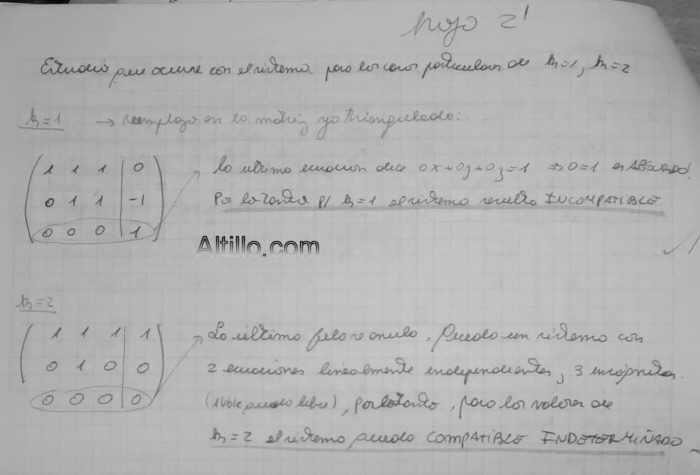 hoja 2'
Estudio que ocurre con el sistema para los casos particulares de k=1, k=2
k=1 → reemplazo en la matriz ya triangulada:
1 1 1 | 0
0 1 1 | -1
0 0 0 | 1
la ultima ecuacion dice 0x+0y+0z=1 ⇒ 0=1 es ABSURDO!
Por lo tanto p/ k=1 el sistema resulta INCOMPATIBLE
Altillo.com
k=2
1 1 1 | 1
0 1 0 | 0
0 0 0 | 0
La última fila se anuló. Queda un sistema con
2 ecuaciones linealmente independientes, 3 incógnitas.
(1 vble queda libre), por lo tanto, para los valores de
k=2 el sistema queda COMPATIBLE INDETERMINADO